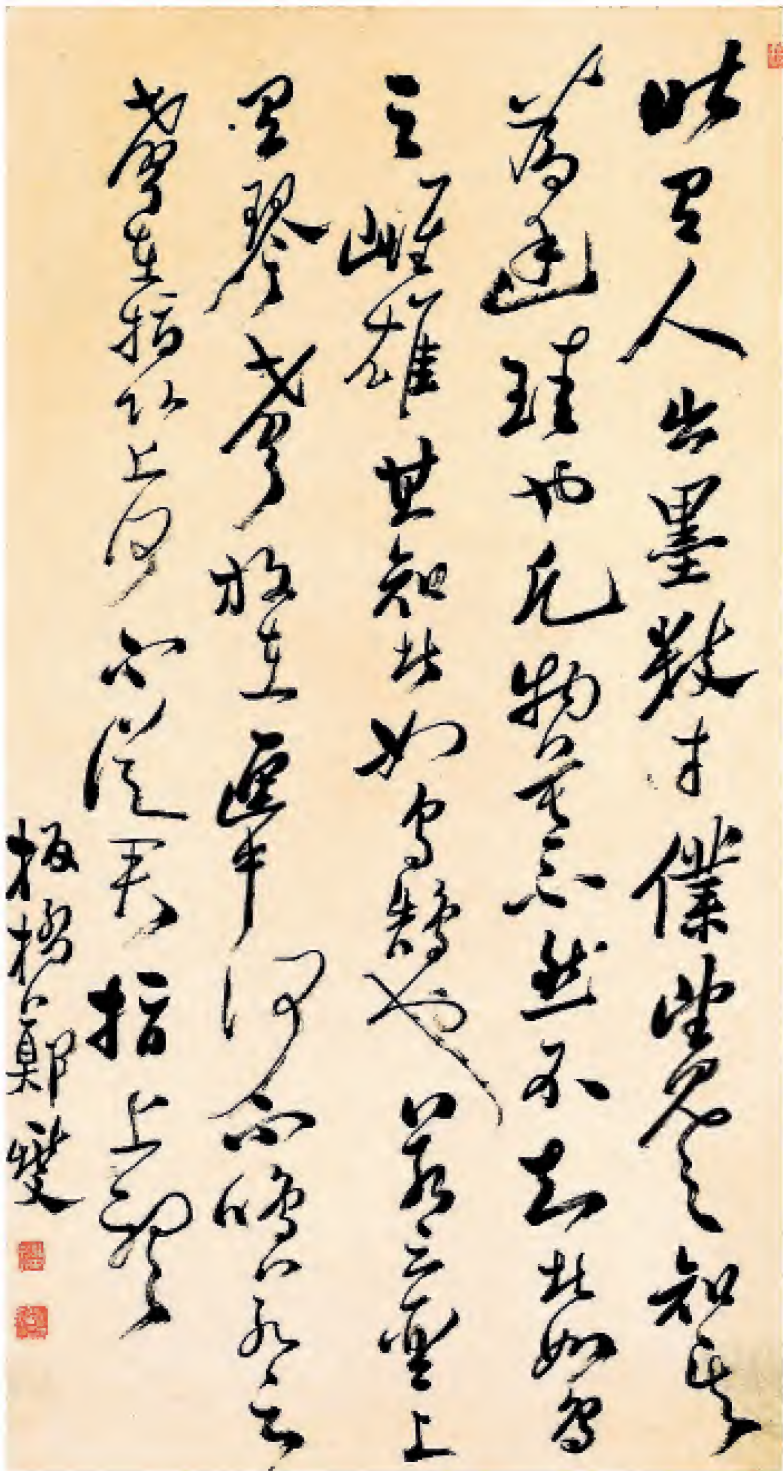 昨有人出墨數寸僕望見之知其
為廷珪也凡物莫不然不知者如烏
之雌雄其知者如烏鵠也若言琴上
有琴聲放在匣中何不鳴若言
聲在指頭上何不從君指上聽
板橋鄭燮